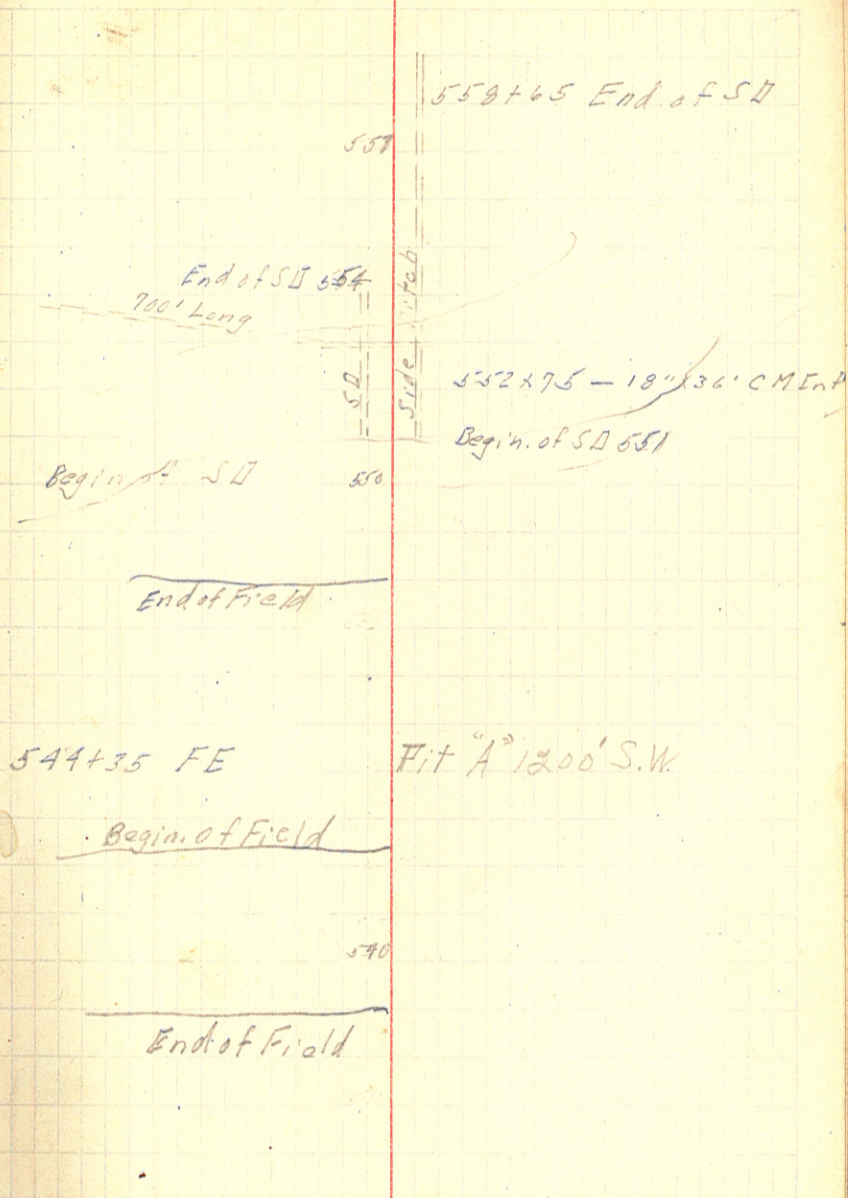 558+65 End of SD
End of SD 554
700' Long
SD
Side Ditch
552+75 — 18" x 36' CM
Begin. of SD 551
Begin of SD
550
End of Field
544+35 FE
Pit "A" 1200' S.W.
Begin. of Field
540
End of Field